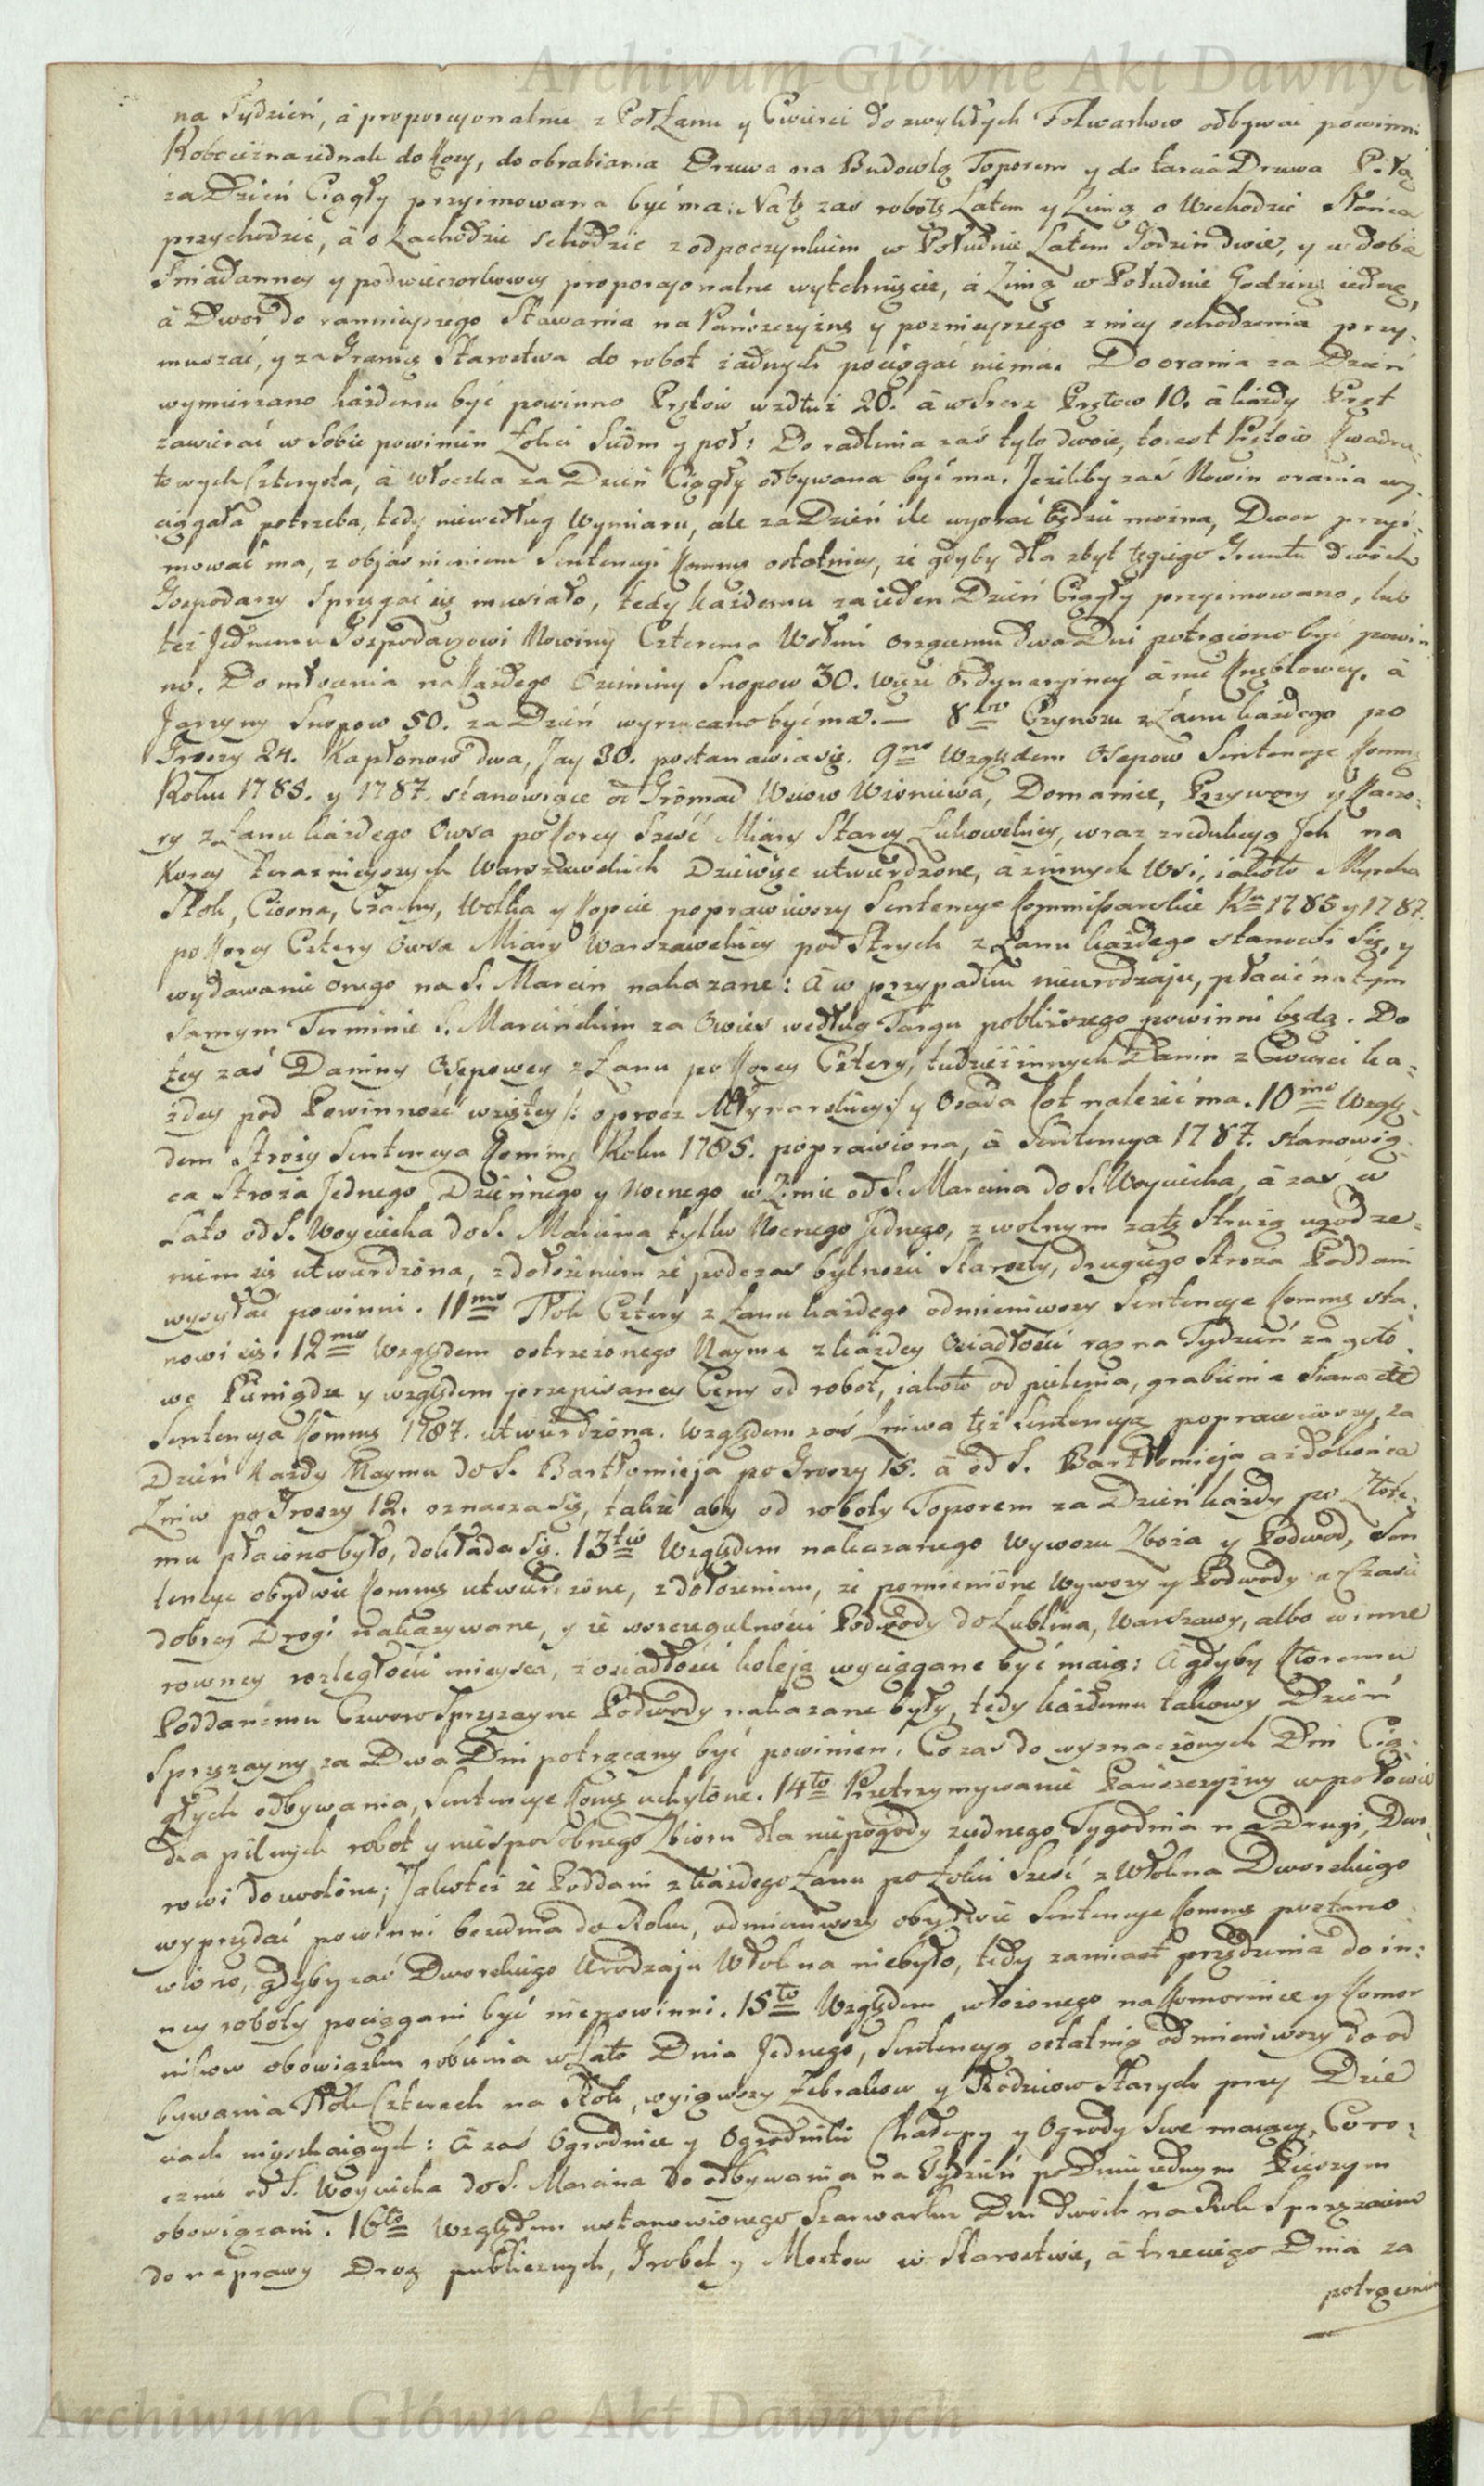 Archiwum Główne Akt Dawnych
na Tydzień, á proporcyonalnie z Poł Łanu y Cwierci do zwykłych Folwarkow odbywać powinni
Robocizna iednak do Kosy, do obrabiania Drzewa na Budowlą Toporem y do tarcia Drzewa Piłą
za Dzień Ciągły przyimowana być ma. Na tę zas robotę Latem y Zimą o Wschodzie Słońca
przychodzić, á o Zachodzie schodzić z odpoczynkiem w Południe Latem Godzin dwie, y w dobie
Sniadanney y podwieczorkowey proporcyonalne wytchnięcie, á Zimą w Południe Godzinę iednę,
á Dwor do rannieyszego Stawania na Pańszczyznę y poznieyszego z niey schodzenia przy-
muszać, y za Granicę Starostwa do robot żadnych pociągać niema. Do orania za Dzień
wymierzano każdemu być powinno Prętow wzdłuż 20. á wszerz Prętow 10. á każdy Pręt
zawierać w Sobie powinien Łokci Siedm y poł: Do radlenia zaś tylo dwoie, to iest Prętow Kwadra-
towych Czterysta, á włoczka za Dzień Ciągły odbywana być ma. Jeżeliby zaś Nowin orania wy-
ciągała potrzeba, tedy niewedług Wymiaru, ale za Dzień ile wyorać będzie można, Dwor przyi-
mować ma, z objasnieniem Sentencyi Kommis ostatniey, że gdyby dla zbyt tęgiego Gruntu dwóch
Gospodarzy Sprzęgać się musiało, tedy każdemu za ieden Dzień Ciągły przyimowano, lub
też Jednemu Gospodarzowi Nowiny Czterema Wołmi orzącemu dwa Dni potrącono być powin
no. Do młocenia na każdego Oziminy Snopow 30. więzi Ordynaryiney á nie Krzyblowey, á
Jarzyny Snopow 50. za Dzień wyrzucano być ma. — 8vo Czynszu z Łanu każdego po
Groszy 24. Kapłonow dwa, Jay 30. postanawia się. 9no Względem Osepow Sentencye Kommis
Roku 1785. y 1787. stanowiące od Gromad Wsiow Wiśniewa, Domanic, Przywory y Kaczo-
ry z Łanu każdego Owsa po Korcy Sześć Miary Starey Łukowskiey, wraz z redukcyą Ich na
Korcy teraznieyszych Warszawskich Dziewięć utwierdzone, á z innych Wsi, iakoto Myrcha
Stok, Ciosna, Czachy, Wolka y Kopcie poprawiwszy Sentencye Kommissarskie Ru 1785 y 1787.
po Korcy Cztery Owsa Miary Warszawskiey pod Strych z Łanu każdego stanowi Się, y
wydawanie onego na S. Marcin nakazane: á w przypadku nieurodzaju, płacić na tym
samym Terminie S. Marcinskim za Owies według Targu pobliższego powinni będą. Do
tey zaś Daniny Osepowey z Łanu po Korcy Cztery, tudzież innych Danin z Cwierci ka-
żdey pod Powinność wziętey /: oprocz Młynarskiey :/ y Osada Kot należeć ma. 10mo Wzglę-
dem Stroży Sentencya Kommis Roku 1785. poprawiona, á Sentencya 1787. stanowią-
ca Stroża Jednego Dziennego y Nocnego w Zimie od S. Marcina do S. Woyciecha, á zaś w
Lato od S. Woyciecha do S. Marcina tylko Nocnego Jednego, z wolnym za tę Strużą ugodze-
niem się utwierdzona, z dołożeniem że podczas bytności Starosty, drugiego Stroża Poddani
wysyłać powinni. 11mo Tłok Cztery z Łanu każdego odmieniwszy Sentencye Kommis sta-
nowi się. 12mo Względem ostrzeżonego Naymu z każdey Osiadłości raz na Tydzień za goto-
we Pieniądze y względem przepisaney Ceny od robot, iakoto od pielenia, grabienia Siana etc
Sentencya Kommis 1787. utwierdzona. Względem zaś Zniwa też Sentencyę poprawiwszy, za
Dzień każdy Naymu do S. Bartłomieja po Groszy 15. á od S. Bartłomieja aż do końca
Zniw po Groszy 12. oznacza się, także aby od roboty Toporem za Dzień każdy po Złote-
mu płacono było, dokłada Się. 13tio Względem nakazanego Wywozu Zboża y Podwod, Sen
tencye obydwie Kommis utwierdzone, z dołożeniem, że pomienione Wywozy y Podwody w Czasie
dobrey Drogi nakazywane, y że w szczegulności Podwody do Lublina, Warszawy, albo w inne
rowney rozległości mieysca, z osiadłości koleją wyciągane być maią: á gdyby Ktoremu
Poddanemu Czworo Sprzężayne Podwody nakazane były, tedy każdemu takowy Dzień
Sprzężayny za Dwa Dni potrącany być powinien. Co zaś do wyznaczonych Dni Cią-
głych odbywania, Sentencye Komis uchylone. 14to Przetrzymywanie Pańszczyzny w połowie
dla pilnych robot y niesposobnego Zbioru dla niepogody z iednego Tygodnia na Drugi, Dwo-
rowi dozwolone; Jakoteż że Poddani z każdego Łanu po Łokci Sześć z Włokna Dworskiego
wyprzędać powinni bezednia do Roku, odmieniwszy obydwie Sentencye Kommis postano
wiono, gdyby zaś Dworskiego Urodzaju Włokna niebyło, tedy zamiast przędzenia do in-
ney roboty pociągani być niepowinni. 15to Względem włożonego na Komornice y Komor
nikow obowiązku robienia w Lato Dnia Jednego, Sentencyą ostatnią odmieniwszy do od
bywania Tłok Czterech na Rok, wyiąwszy Żebrakow y Rodzicow Starych przy Dzie
ciach mięszkaiących: á zaś Ogrodnice y Ogrodniki Chałupy y Ogrody Swe maiący, Coro-
cznie od S. Woyciecha do S. Marcina do odbywania na Tydzień po Dniu iednym Pieszym
obowiązani. 16to Względem ustanowionego Szarwarku Dni dwoch na Rok Sprzężaiem
do naprawy Drog publicznych, Grobel y Mostow w Starostwie, á trzeciego Dnia za
potrąceniem
Archiwum Główne Akt Dawnych